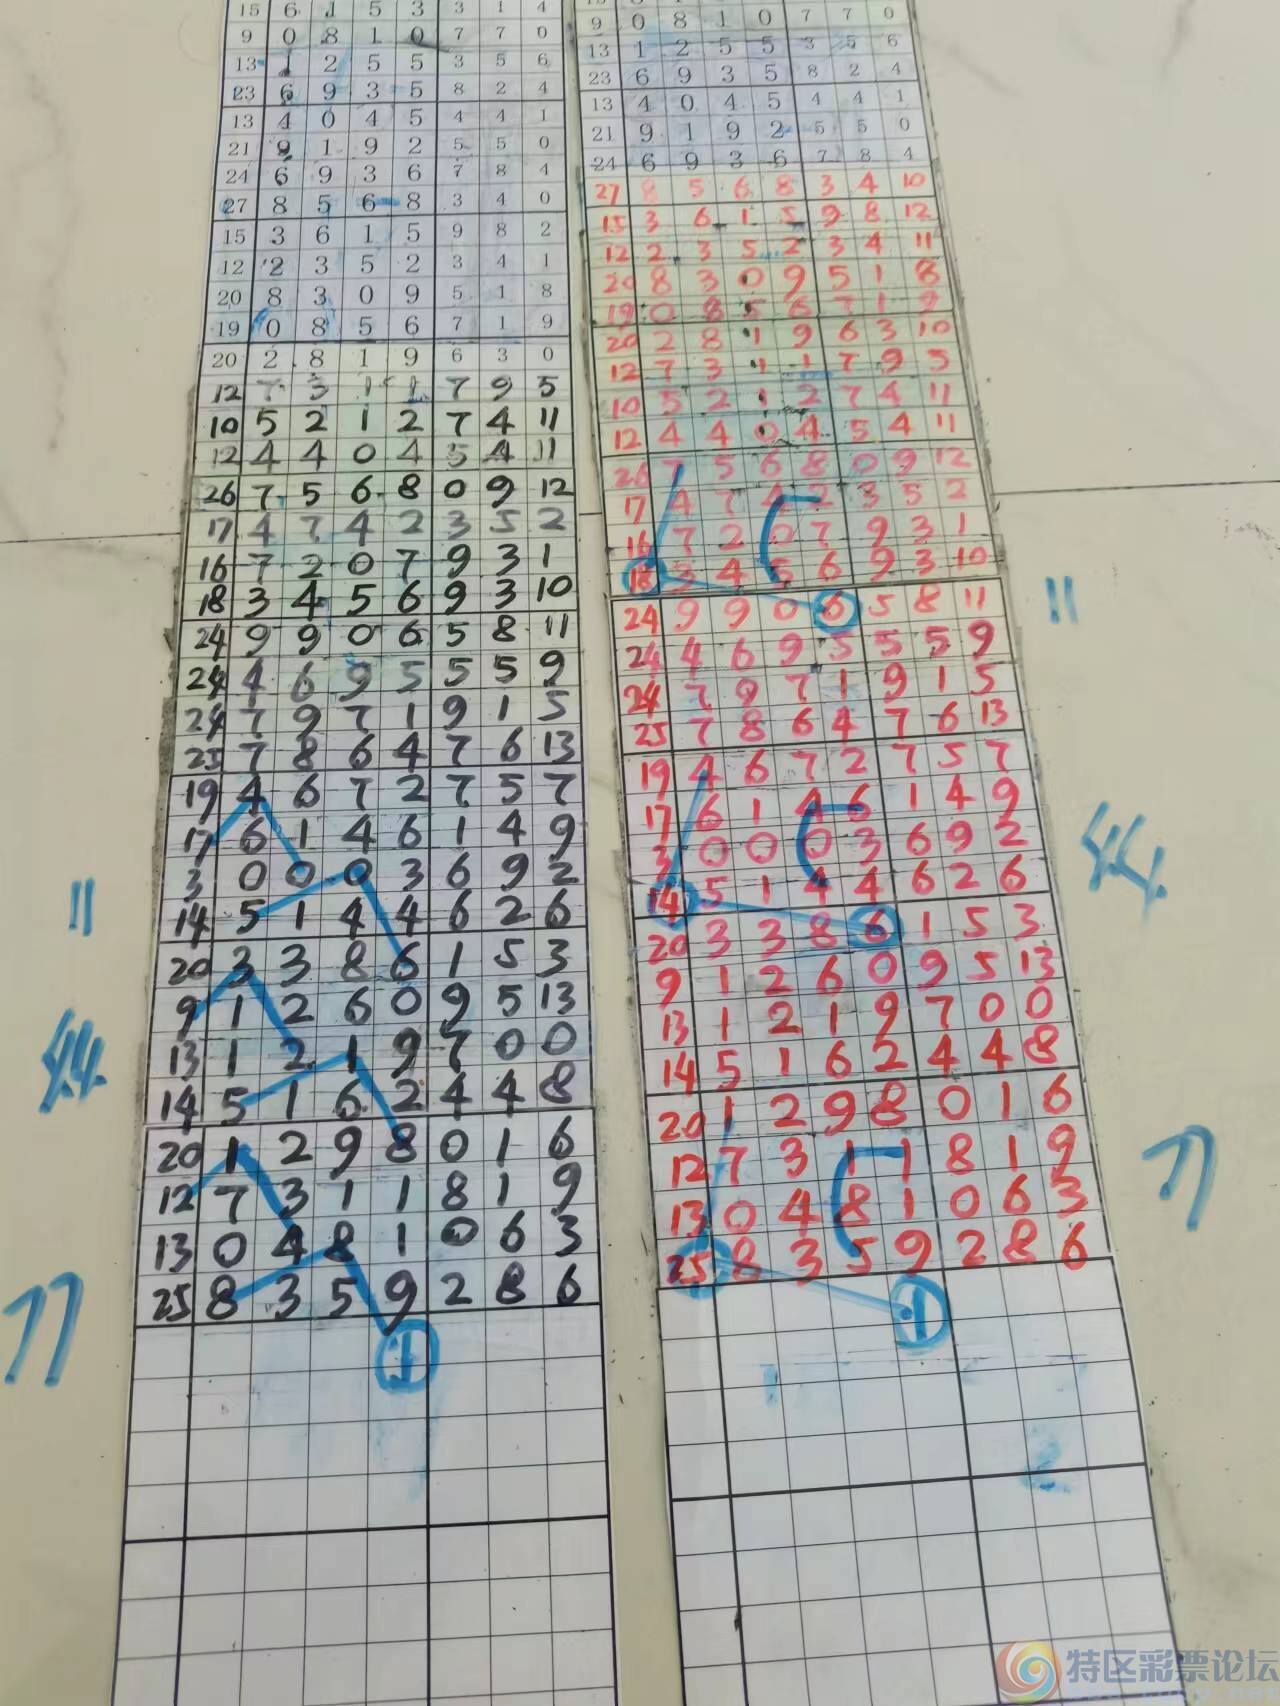 15 6 1 5 3 3 1 4
9 0 8 1 0 7 7 0
13 1 2 5 5 3 5 6
23 6 9 3 5 8 2 4
13 4 0 4 5 4 4 1
21 9 1 9 2 5 5 0
24 6 9 3 6 7 8 4
27 8 5 6 8 3 4 0
15 3 6 1 5 9 8 2
12 2 3 5 2 3 4 1
20 8 3 0 9 5 1 8
19 0 8 5 6 7 1 9
20 2 8 1 9 6 3 0
12 7 3 1 1 7 9 5
10 5 2 1 2 7 4 11
12 4 4 0 4 5 4 11
26 7 5 6 8 0 9 12
17 4 7 4 2 3 5 2
16 7 2 0 7 9 3 1
18 3 4 5 6 9 3 10
24 9 9 0 6 5 8 11
24 4 6 9 5 5 5 9
24 7 9 7 1 9 1 5
25 7 8 6 4 7 6 13
19 4 6 7 2 7 5 7
17 6 1 4 6 1 4 9
3 0 0 0 3 6 9 2
14 5 1 4 4 6 2 6
20 3 3 8 6 1 5 3
9 1 2 6 0 9 5 13
13 1 2 1 9 7 0 0
14 5 1 6 2 4 4 8
20 1 2 9 8 0 1 6
12 7 3 1 1 8 1 9
13 0 4 8 1 0 6 3
25 8 3 5 9 2 8 6
1
9 0 8 1 0 7 7 0
13 1 2 5 5 3 5 6
23 6 9 3 5 8 2 4
13 4 0 4 5 4 4 1
21 9 1 9 2 5 5 0
24 6 9 3 6 7 8 4
27 8 5 6 8 3 4 10
15 3 6 1 5 9 8 12
12 2 3 5 2 3 4 11
20 8 3 0 9 5 1 8
19 0 8 5 6 7 1 9
20 2 8 1 9 6 3 10
12 7 3 1 1 7 9 5
10 5 2 1 2 7 4 11
12 4 4 0 4 5 4 11
26 7 5 6 8 0 9 12
17 4 7 4 2 3 5 2
16 7 2 0 7 9 3 1
18 3 4 5 6 9 3 10
24 9 9 0 6 5 8 11
24 4 6 9 5 5 5 9
24 7 9 7 1 9 1 5
25 7 8 6 4 7 6 13
19 4 6 7 2 7 5 7
17 6 1 4 6 1 4 9
3 0 0 0 3 6 9 2
14 5 1 4 4 6 2 6
20 3 3 8 6 1 5 3
9 1 2 6 0 9 5 13
13 1 2 1 9 7 0 0
14 5 1 6 2 4 4 8
20 1 2 9 8 0 1 6
12 7 3 1 1 8 1 9
13 0 4 8 1 0 6 3
25 8 3 5 9 2 8 6
1
特区彩票论坛